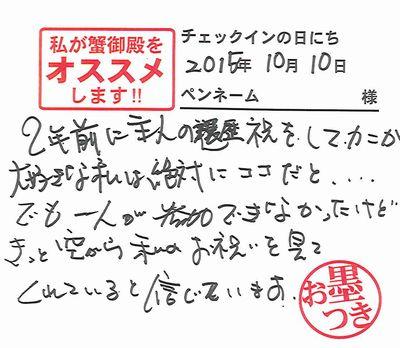 私が蟹御殿を
オススメ
します!!
チェックインの日にち
2015年 10月 10日
ペンネーム 様
2年前に主人の還暦祝をして、カニが
大好きな私は絶対にココだと、...
でも一人が参加できなかったけど
きっと空から私のお祝いを見て
くれていると信じています。
お墨つき